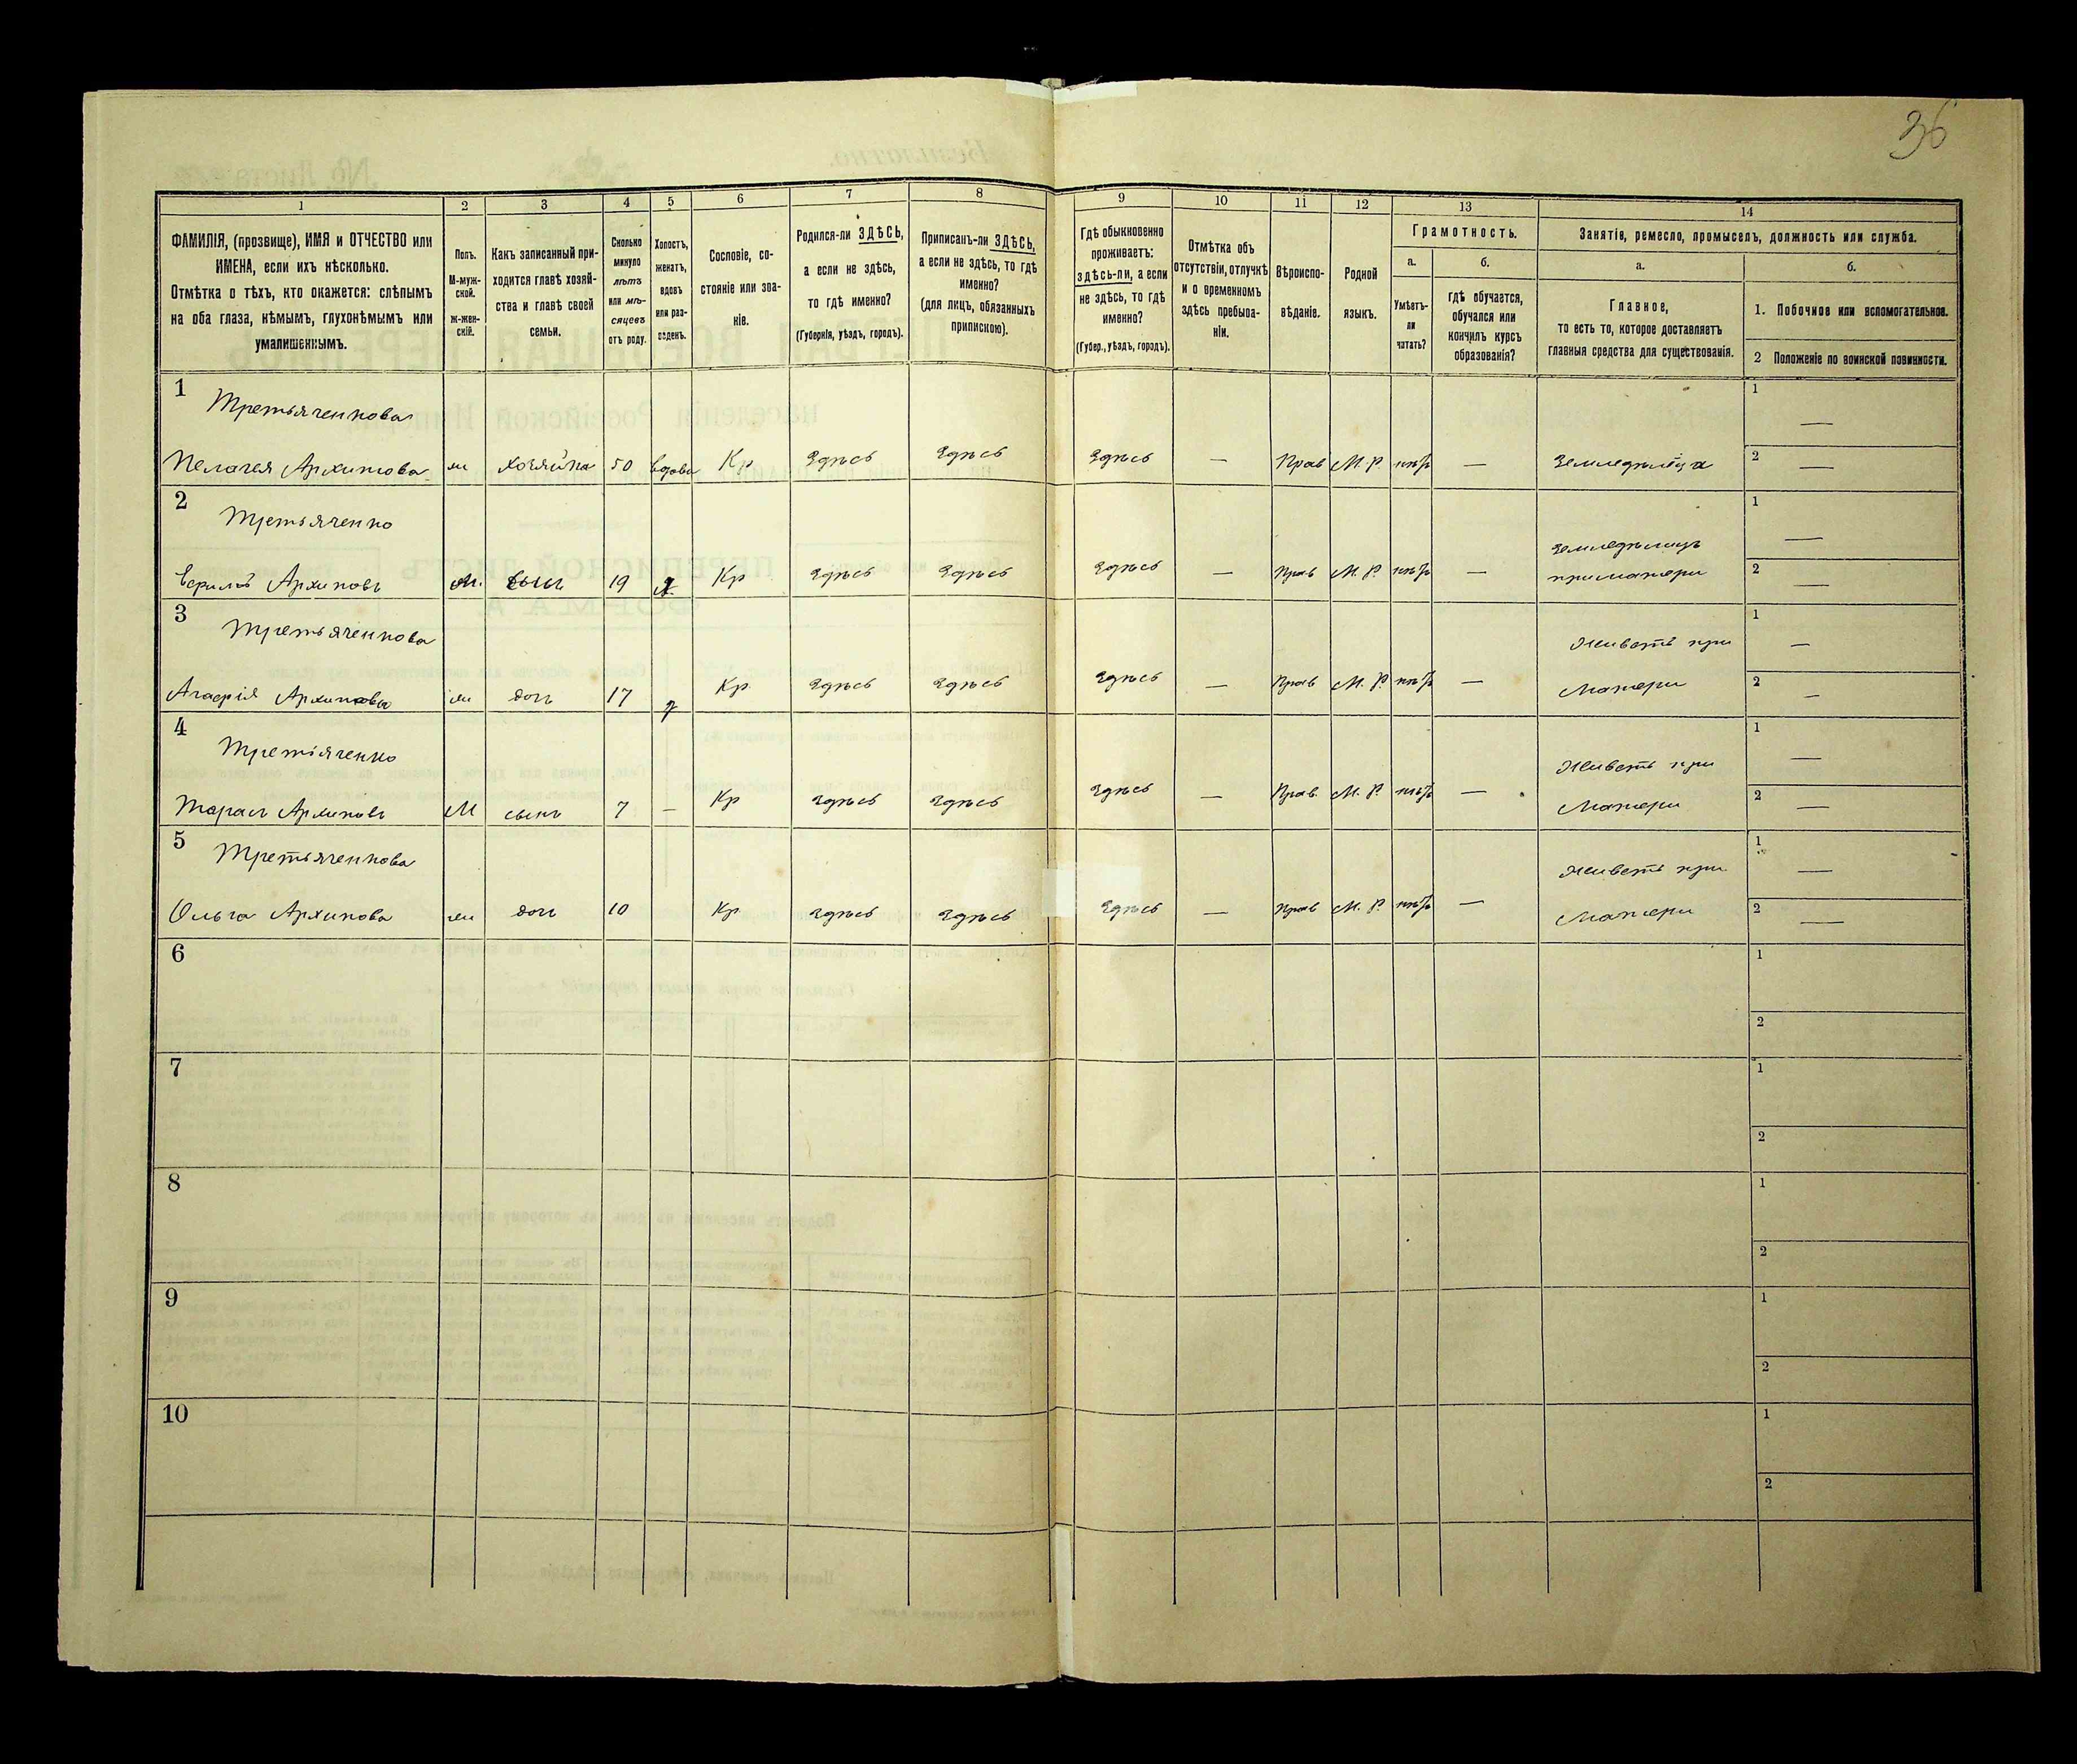 36
1 2 3 4 5 6 7 8 9 10 11 12 13 14
ФАМИЛІЯ, (прозвище), ИМЯ и ОТЧЕСТВО или ИМЕНА, если ихъ нѣсколько.
Отмѣтка о тѣхъ, кто окажется: слѣпымъ на оба глаза, нѣмымъ, глухонѣмымъ или умалишеннымъ.
Полъ. М-мужской. ж-женскій.
Какъ записанный приходится главѣ хозяйства и главѣ своей семьи.
Сколько минуло лѣтъ или мѣсяцевъ отъ роду.
Холостъ, женатъ, вдовъ или разведенъ.
Сословіе, состояніе или званіе.
Родился-ли ЗДѢСЬ, а если не здѣсь, то гдѣ именно?
(Губернія, уѣздъ, городъ).
Приписанъ-ли ЗДѢСЬ, а если не здѣсь, то гдѣ именно?
(для лицъ, обязанныхъ припискою).
Гдѣ обыкновенно проживаетъ: здѣсь-ли, а если не здѣсь, то гдѣ именно?
(Губер., уѣздъ, городъ).
Отмѣтка объ отсутствіи, отлучкѣ и о временномъ здѣсь пребываніи.
Вѣроисповѣданіе.
Родной языкъ.
Грамотность.
а. Умѣетъ-ли читать?
б. гдѣ обучается, обучался или кончилъ курсъ образованія?
Занятіе, ремесло, промыселъ, должность или служба.
а. Главное, то есть то, которое доставляетъ главныя средства для существованія.
б.
1. Побочное или вспомогательное.
2 Положеніе по воинской повинности.
1 Третьяченкова 1 —
Пелагея Архипова ж хозяйка 50 вдова Кр Здѣсь Здѣсь Здѣсь — Прав М. Р. нѣтъ — Земледѣлица 2 —
2 Третьяченко Земледѣлецъ 1 —
Архиповъ М. сынъ 19 х Кр Здѣсь Здѣсь Здѣсь — Прав М. Р. нѣтъ — при матери 2 —
3 Третьяченкова Живетъ при 1 —
Агафія Архипова ж дочь 17 Кр. Здѣсь Здѣсь Здѣсь — Прав М. Р. нѣтъ — Матери 2 —
4 Третьяченко Живетъ при 1 —
Тарасъ Архиповъ М сынъ 7 — Кр Здѣсь Здѣсь Здѣсь — Прав. М. Р. нѣтъ — Матери 2 —
5 Третьяченкова Живетъ при 1 —
Ольга Архипова ж дочь 10 Кр. Здѣсь Здѣсь Здѣсь — Прав М. Р. нѣтъ — Матери 2 —
6 1
2
7 1
2
8 1
2
9 1
2
10 1
2